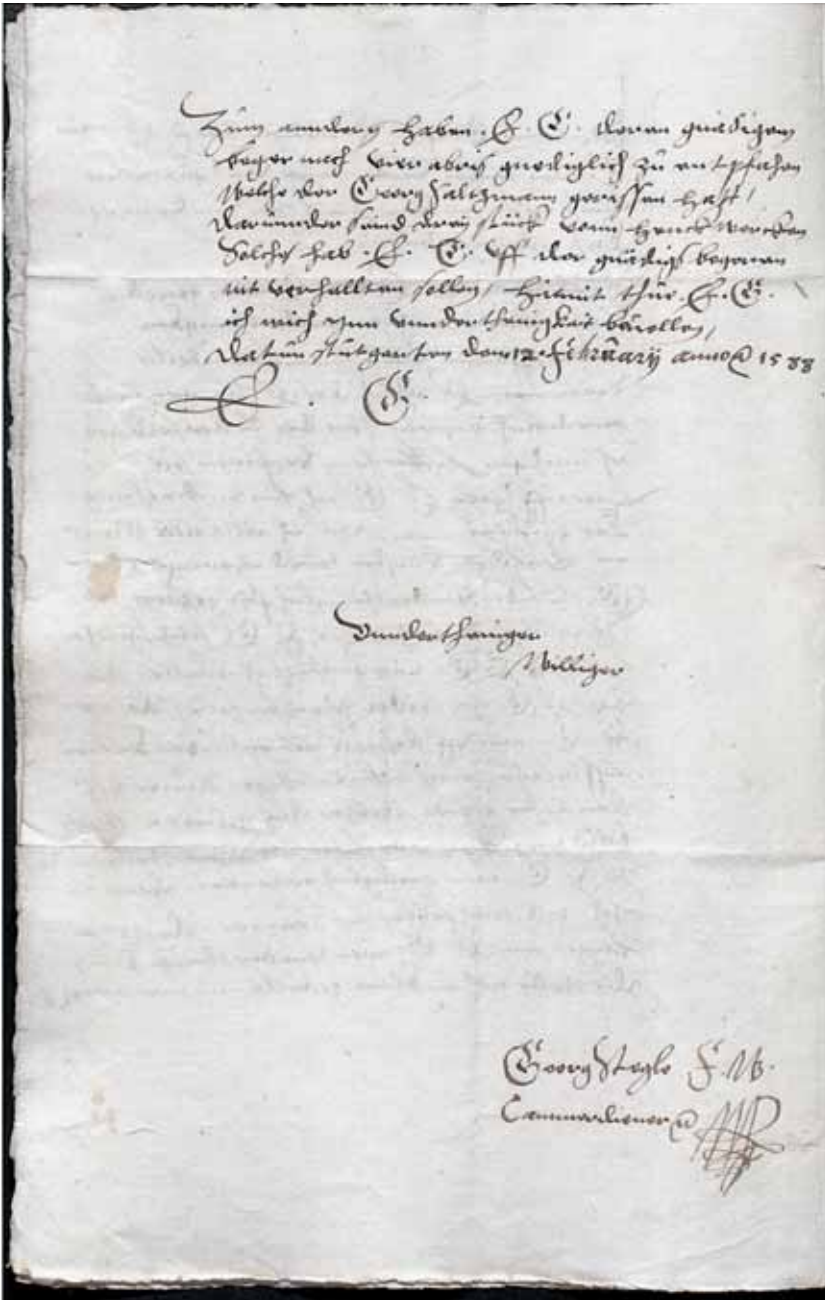 Zum anndern haben. E. G. deren gnedigem
beger nach vier abris gnediglich zu entpfahen
welche der Georg Saltzmann gerissen hatt,
darunnder sind drey stückh vonn truckwercken
Solchs hab. E. G. uff der gnedigs begeren
nit verhallten sollen, hiemit thue. E. G.
ich mich inn underthenigkeit bevellen,
Datum stutgarten den 12. February anno 1588
E. G
Undertheniger
Williger
Georg Stegle F. W.
Cammerdiener